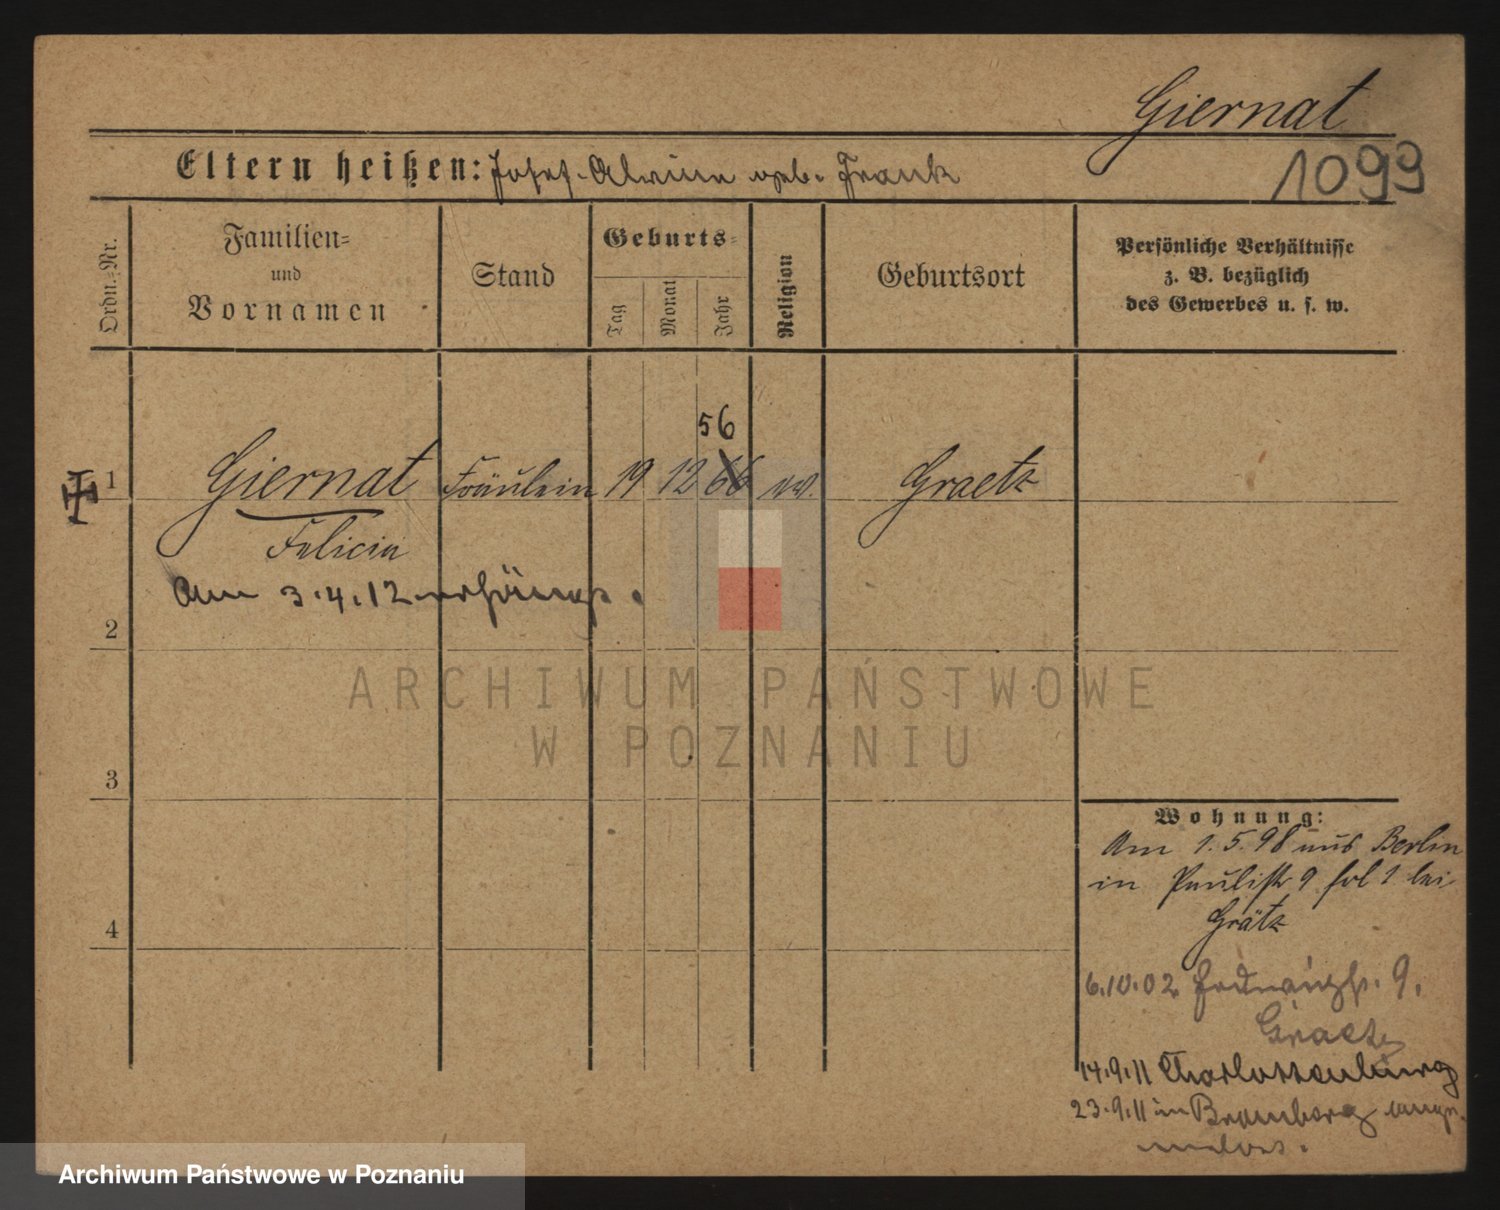 Giernat
1099
Eltern heißen: Josef. Alwine geb. Frank
Ordn.=Nr.
Familien=
und
Vornamen
Stand
Geburts=
Tag
Monat
Jahr
Religion
Geburtsort
Persönliche Verhältnisse
z. B. bezüglich
des Gewerbes u. s. w.
56
1 Giernat Fräulein 19 12 66 ev. Graetz
Felicia
Am 3.4.12
2
3
4
Wohnung:
Am 1.5.98 aus Berlin
in Paulistr 9 bei
Grätz
6.10.02 9.
Graetz
14.9.11 Charlottenburg
23.9.11 in Bromberg
ARCHIWUM PAŃSTWOWE
W POZNANIU
Archiwum Państwowe w Poznaniu